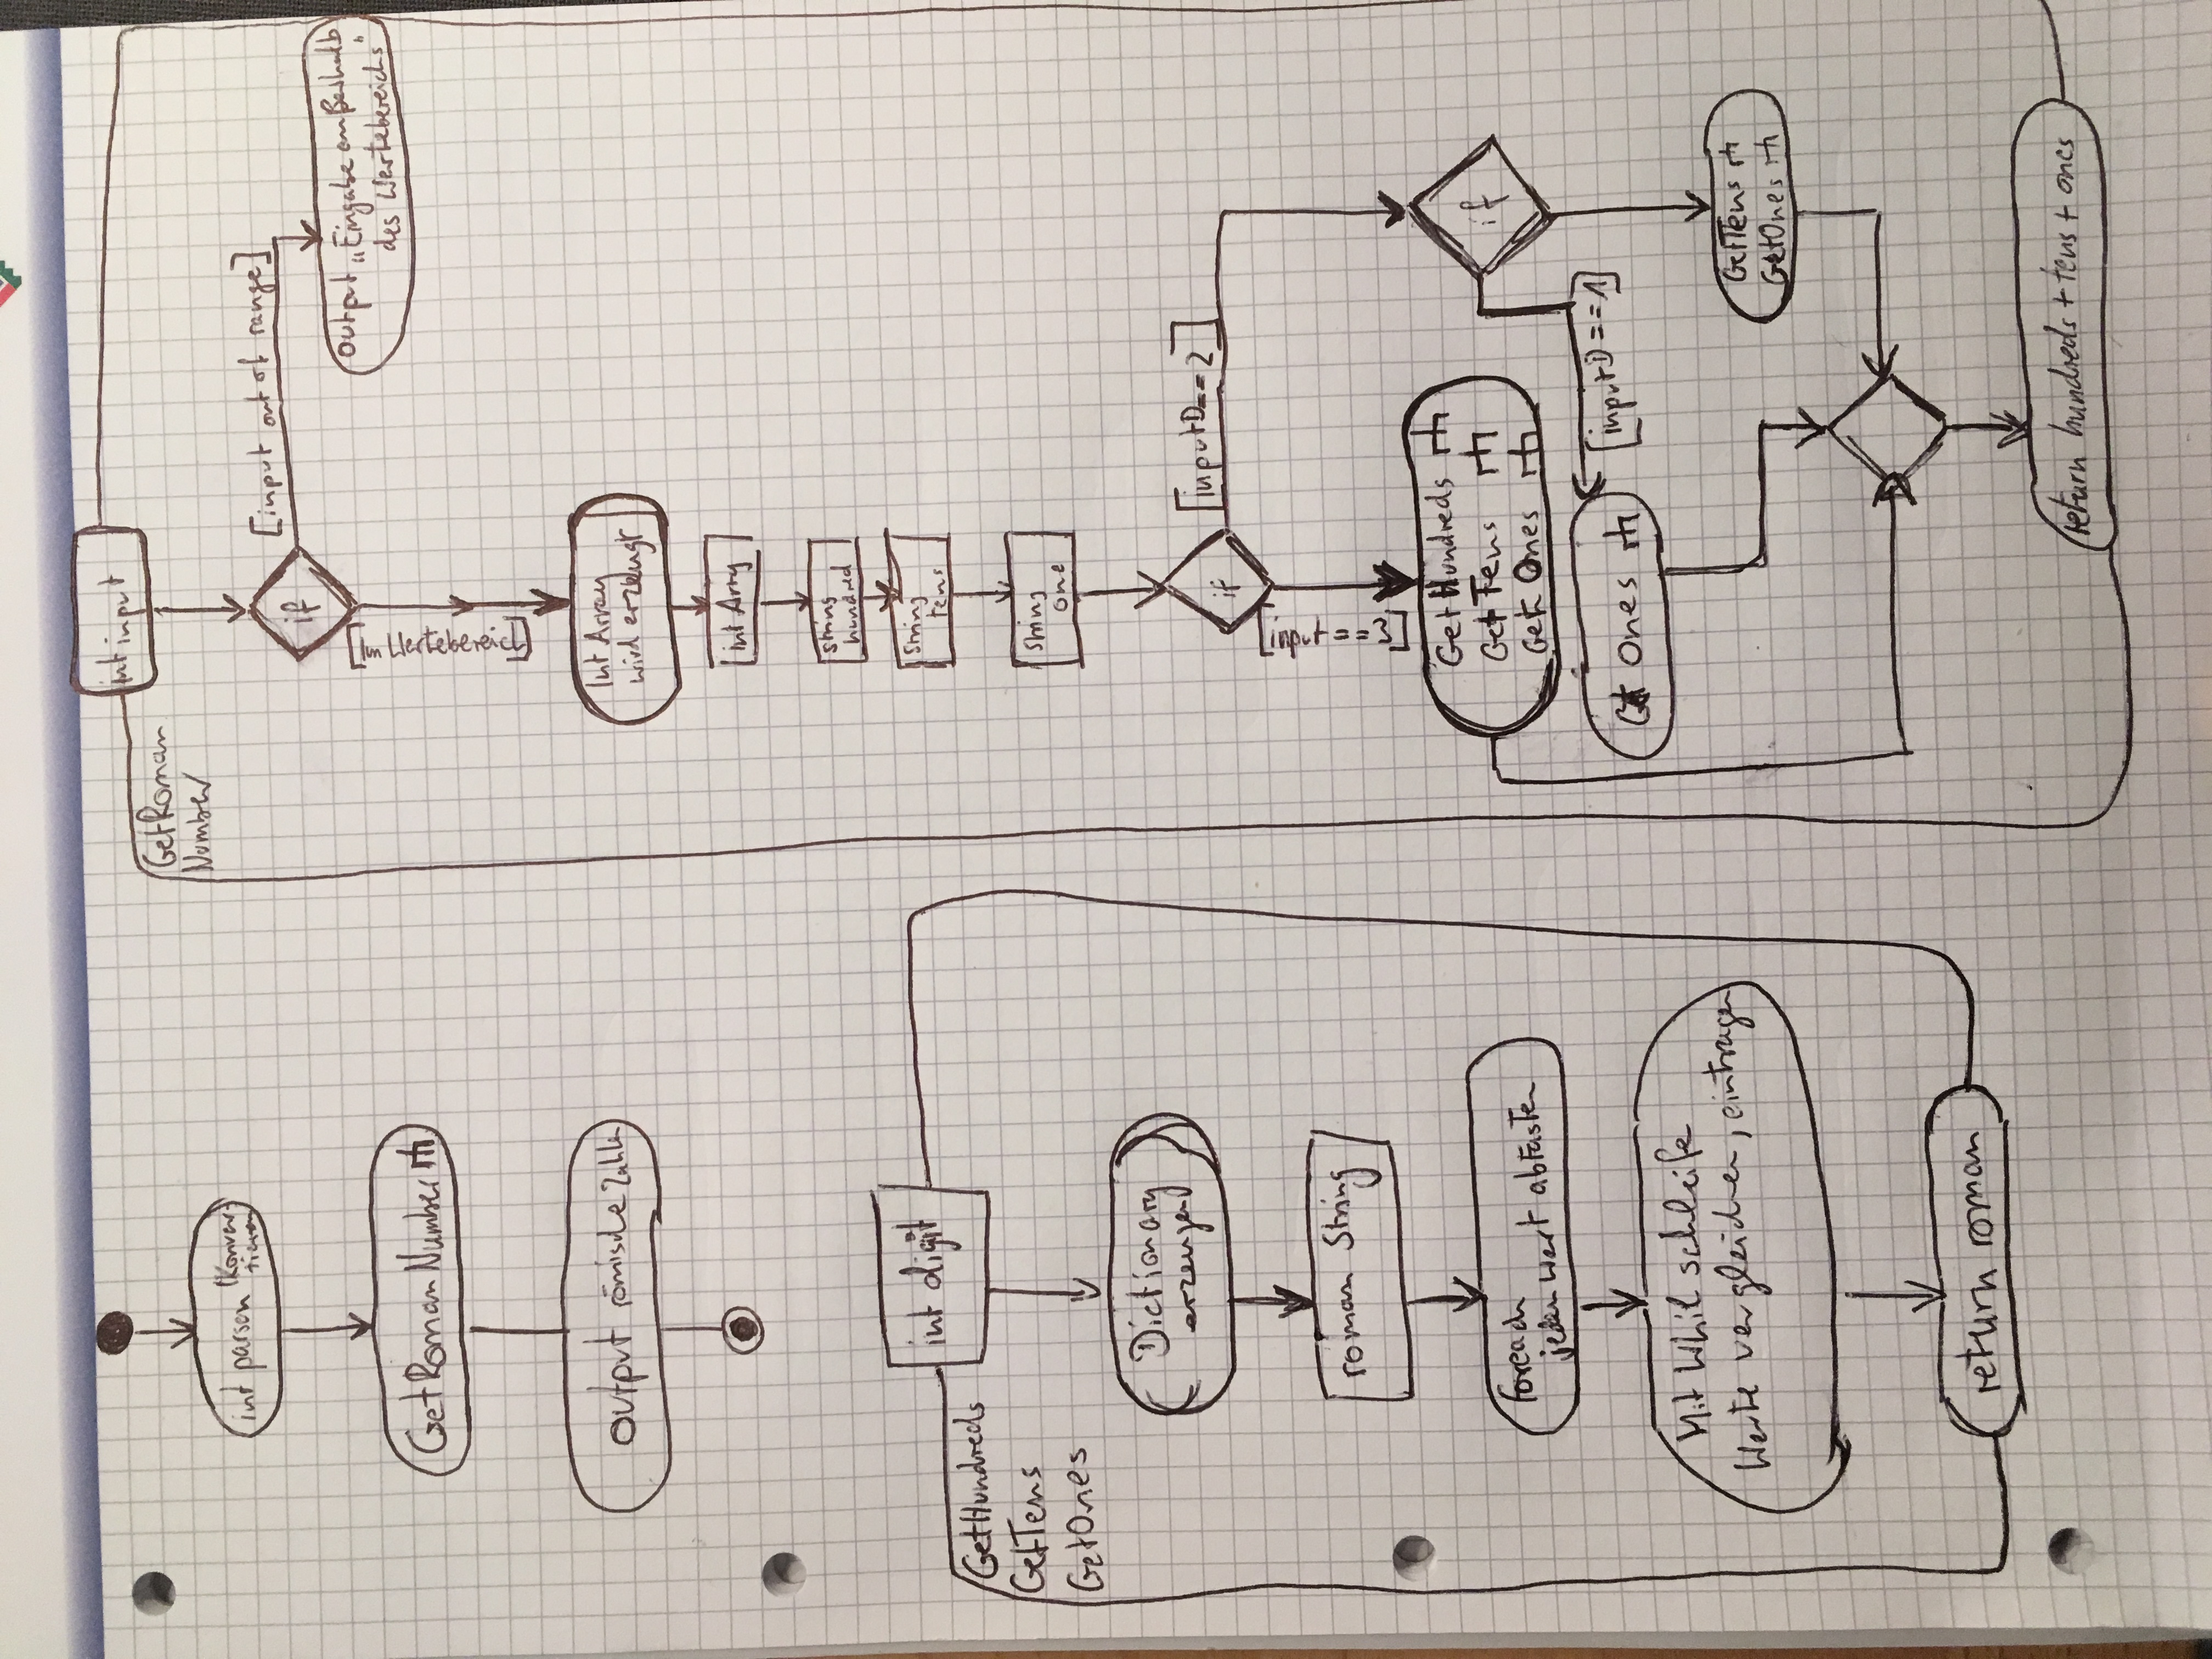 int parsen (Konver-
tieren)
GetRomanNumber
output römische Zahlen
int digit
GetHundreds
GetTens
GetOnes
Dictionary
erzeugen
roman String
foreach
jeden Wert abtasten
Mit Whil schleife
Werte vergleichen, eintragen
return roman
int input
GetRoman
Number
if
[input out of range]
output „Eingabe außerhalb
des Wertebereichs"
[Im Wertebereich]
Int Array
wird erzeugt
int Arry
string
hundred
string
tens
string
one
if
[inputD==2]
[input==3]
GetHundreds
Get Tens
Get Ones
if
[inputD==1]
Get Ones
GetTens
GetOnes
return hundreds + tens + ones